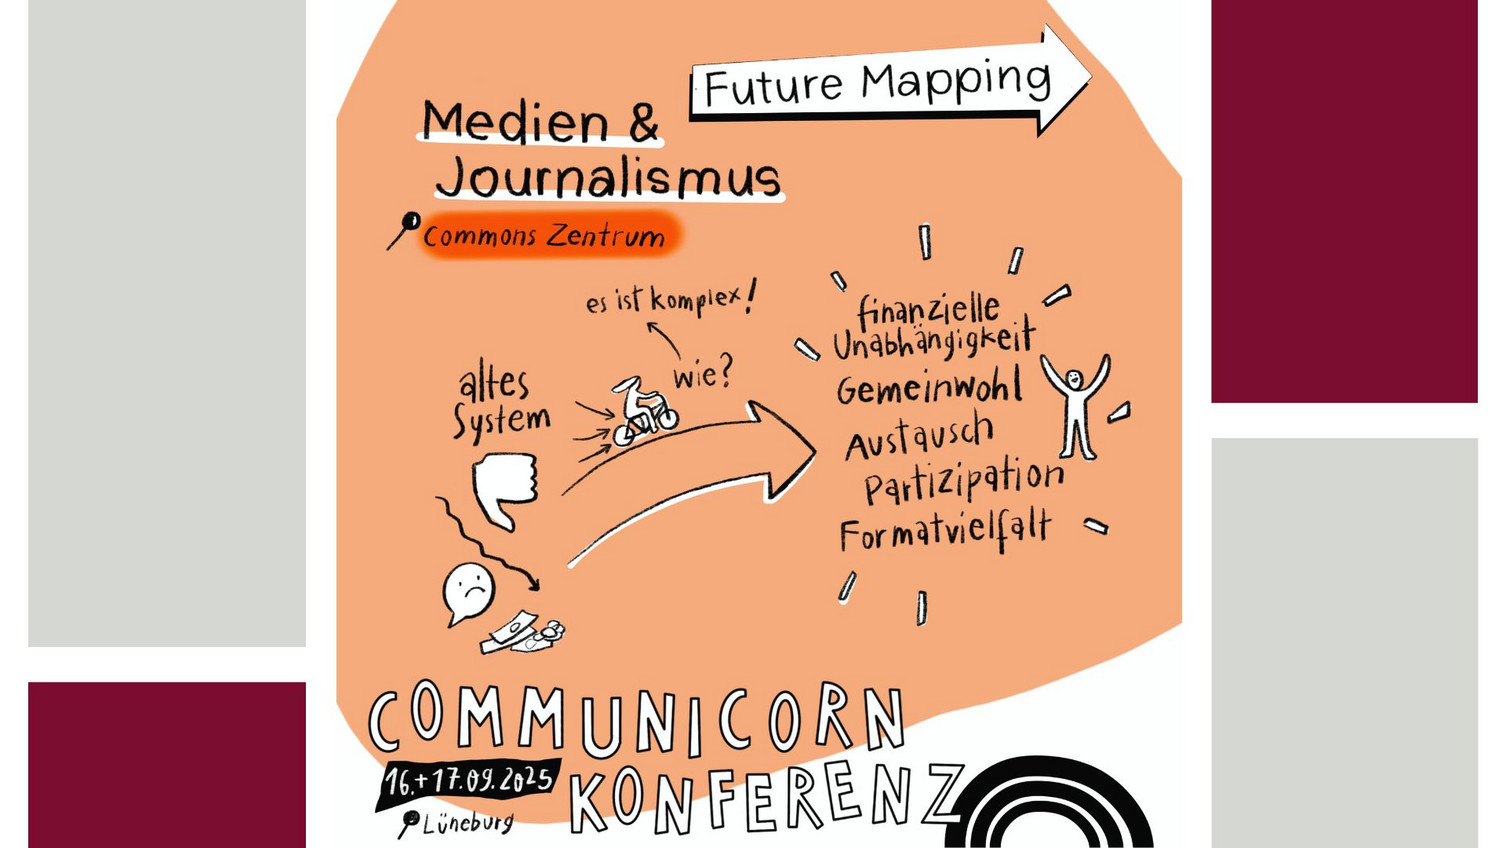 Future Mapping
Medien &
Journalismus
Commons Zentrum
es ist komplex!
wie?
altes
System
finanzielle
Unabhängigkeit
Gemeinwohl
Austausch
Partizipation
Formatvielfalt
COMMUNICORN
16.+17.09.2025
KONFERENZ
Lüneburg